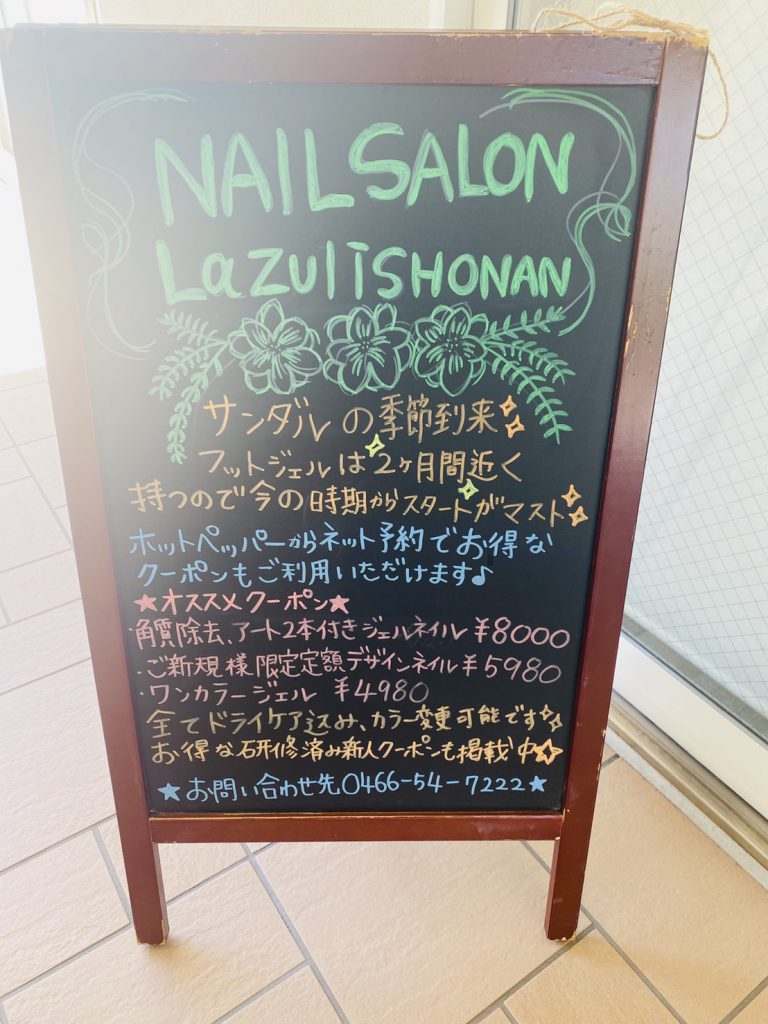 NAILSALON
LazuliSHONAN
サンダルの季節到来
フットジェルは2ヶ月間近く
持つので今の時期からスタートがマスト
ホットペッパーからネット予約でお得な
クーポンもご利用いただけます♪
★オススメクーポン★
・角質除去、アート2本付きジェルネイル ¥8000
・ご新規様限定定額デザインネイル ¥5980
・ワンカラージェル ¥4980
全てドライケア込み、カラー変更可能です
お得な研修済み新人クーポンも掲載中
★お問い合わせ先0466-54-7222★